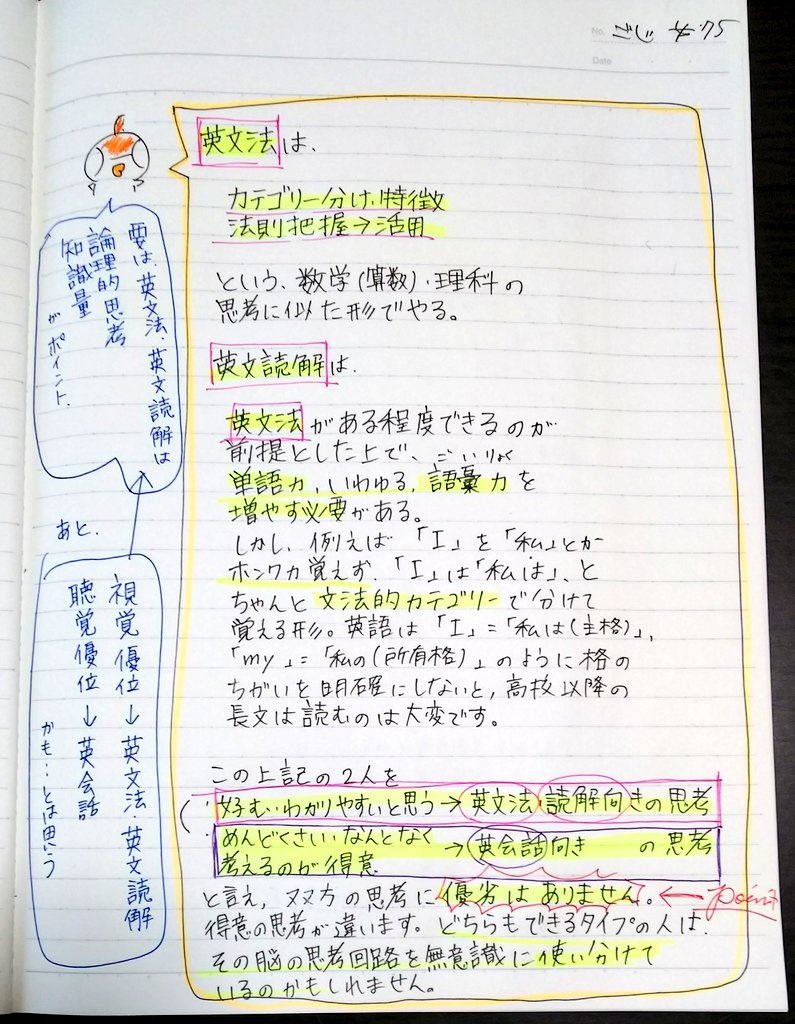 No.
Date
英文法は、
カテゴリー分け、特徴
法則把握→活用
という、数学(算数)・理科の
思考に似た形でやる。
英文読解は、
英文法がある程度できるのが
前提とした上で、ごいりょく
単語力、いわゆる、語彙力を
増やす必要がある。
しかし、例えば「I」を「私」とか
ホンワカ覚えず「I」は「私は」、と
ちゃんと文法的カテゴリーで分けて
覚える形。英語は「I」=「私は(主格)」、
「my」=「私の(所有格)」のように格の
ちがいを明確にしないと、高校以降の
長文は読むのは大変です。
この上記の2人を
好む・わかりやすいと思う→英文法・読解向きの思考
めんどくさい・なんとなく
考えるのが得意
→英会話向きの思考
と言え、双方の思考に優劣はありません。←point
得意の思考が違います。どちらもできるタイプの人は、
その脳の思考回路を無意識に使い分けて
いるのかもしれません。
要は、英文法、英文読解は
論理的思考
知識量
がポイント、
あと、
視覚優位→英文法・英文読解
聴覚優位→英会話
かも…とは思う